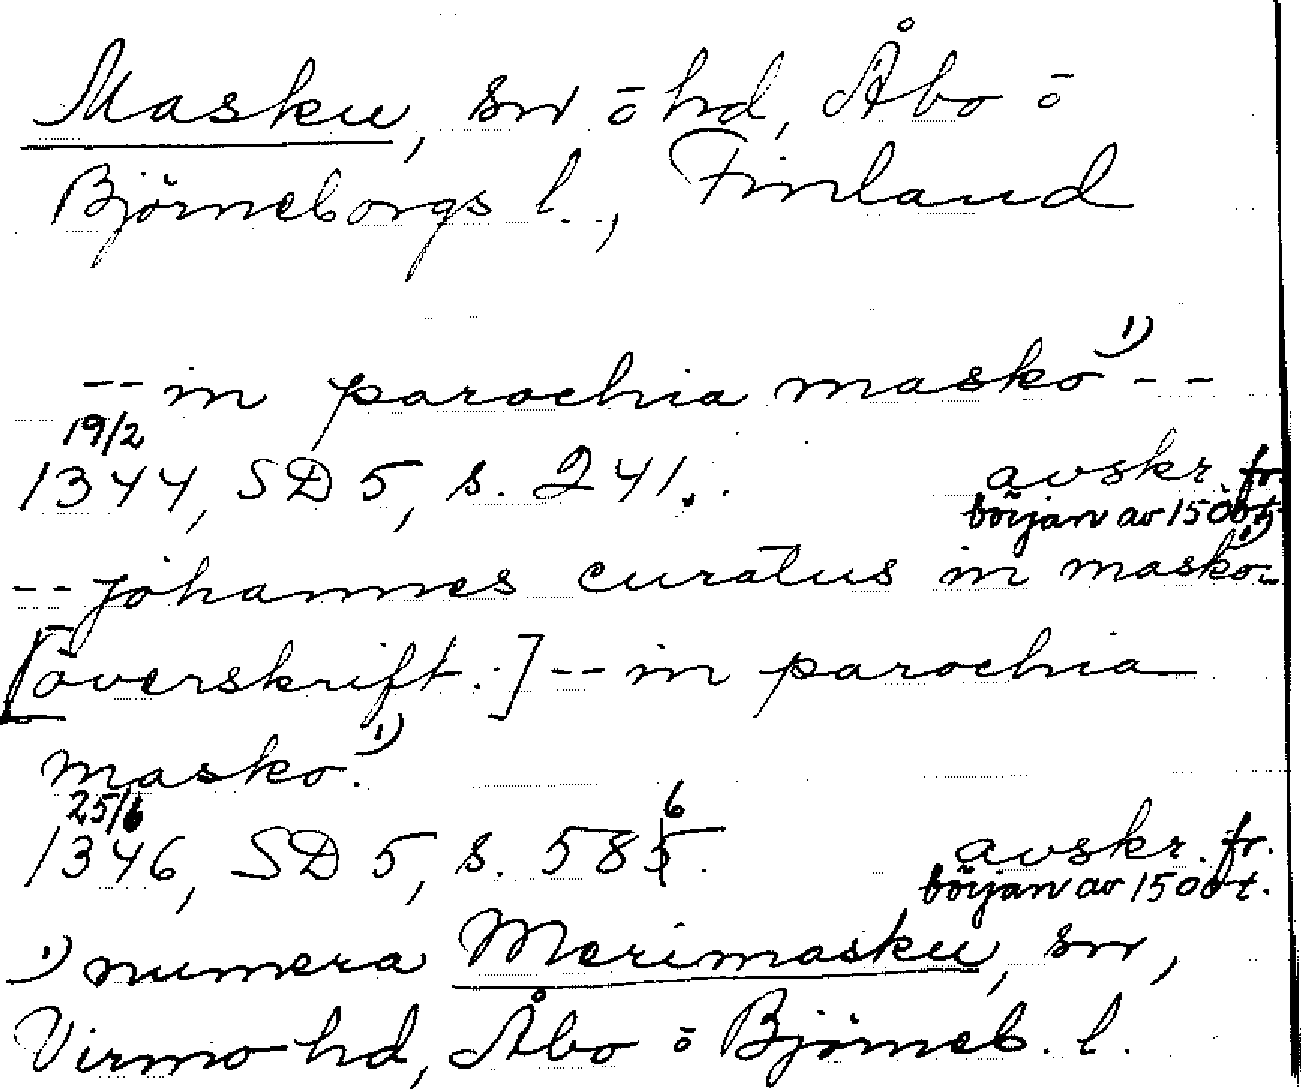 Masku, sn ō hd, Åbo ō
Björneborgs l., Finland
-- in parochia masko 1) --
19/2
1344, SD 5, s. 241. avskr. fr.
början av 1500t.
-- johannes curatus in masko 1) --
[överskrift.] -- in parochia
masko. 1)
25/6
1346, SD 5, s. 586. avskr. fr.
början av 1500t.
1) numera Merimasku, sn,
Virmo hd, Åbo ō Björneb. l.